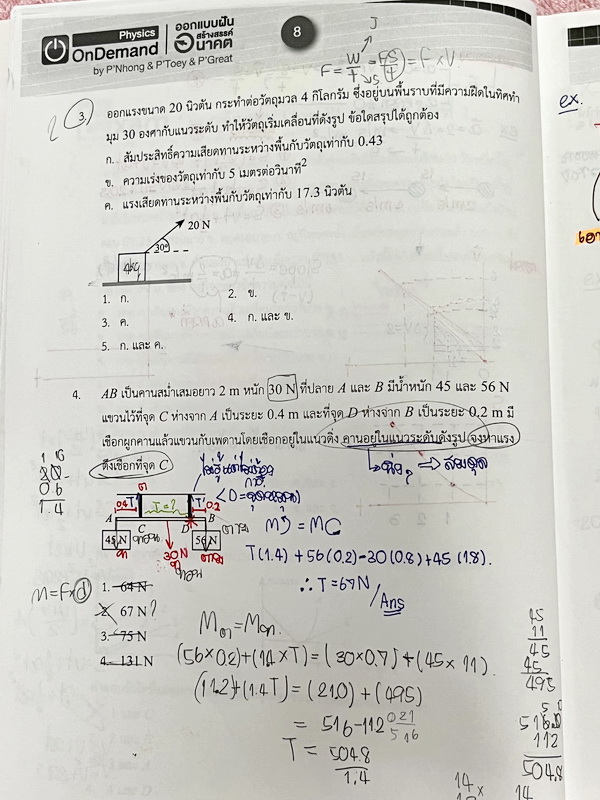 Physics
OnDemand
ออกแบบฝัน
สร้างสรรค์
อนาคต
by P'Nhong & P'Toey & P'Great
8
J
F = W/t = FS/t = F × V
S
ex.
3. ออกแรงขนาด 20 นิวตัน กระทำต่อวัตถุมวล 4 กิโลกรัม ซึ่งอยู่บนพื้นราบที่มีความฝืดในทิศทำ
มุม 30 องศากับแนวระดับ ทำให้วัตถุเริ่มเคลื่อนที่ดังรูป ข้อใดสรุปได้ถูกต้อง
ก. สัมประสิทธิ์ความเสียดทานระหว่างพื้นกับวัตถุเท่ากับ 0.43
ข. ความเร่งของวัตถุเท่ากับ 5 เมตรต่อวินาที²
ค. แรงเสียดทานระหว่างพื้นกับวัตถุเท่ากับ 17.3 นิวตัน
20 N
30°
4kg
1. ก.
2. ข.
3. ค.
4. ก. และ ข.
5. ก. และ ค.
4. AB เป็นคานสม่ำเสมอยาว 2 m หนัก 30 N ที่ปลาย A และ B มีน้ำหนัก 45 และ 56 N
แขวนไว้ที่จุด C ห่างจาก A เป็นระยะ 0.4 m และที่จุด D ห่างจาก B เป็นระยะ 0.2 m มี
เชือกผูกคานแล้วแขวนกับเพดานโดยเชือกอยู่ในแนวดิ่ง คานอยู่ในแนวระดับดังรูป จงหาแรง
ดึงเชือกที่จุด C
⇒ สมดุล
2.0
0.6
1.4
0.4
T
T = ?
T
0.2
A
C
D
B
45 N
30 N
56 N
ทวน
ตาม
M = MC
T(1.4) + 56(0.2) = 30(0.8) + 45(1.8).
∴ T = 67 N
Ans
M = F×d
1. 64 N
2. 67 N ?
3. 75 N
4. 131 N
(56×0.2)+(1.4 × T) = (30×0.7) + (45 × 11).
(11.2)+(1.4T) = (21.0) + (495)
= 516-112
021
516
T = 504.8
1.4
45
11
45
45
495
516.0
112
504.8
14 ×
14